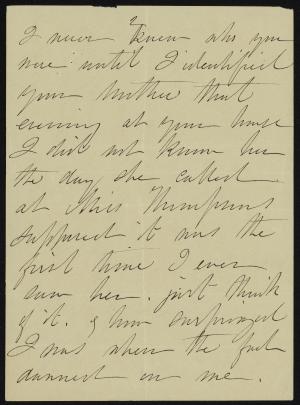 I never knew who you
were until I identified
your Mother that
evening at your house
I did not know her
the day she called
at Miss Thompsons
supposed it was the
first time I ever
saw her. just think
of it. & how surprised
I was when the fact
dawned on me.